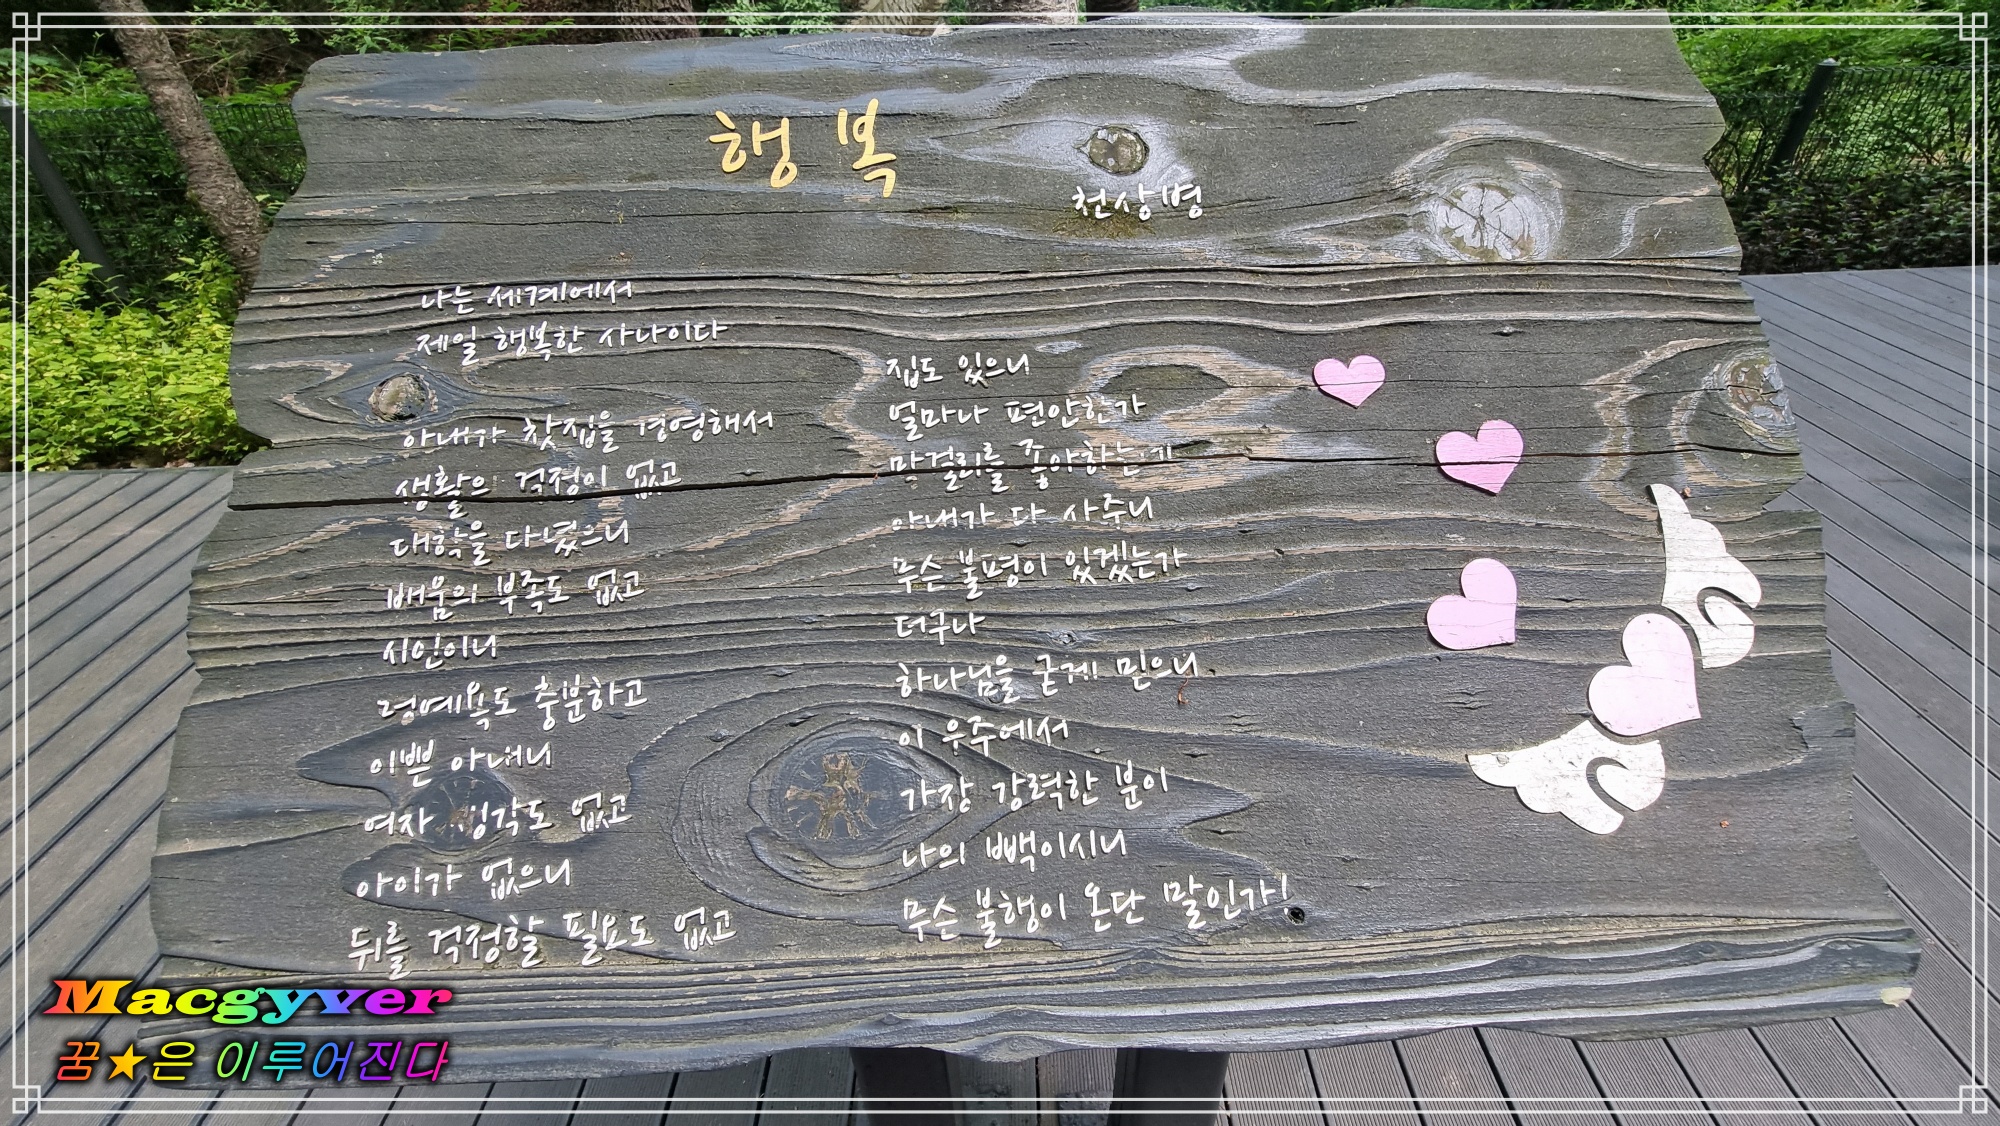 행복
천상병
나는 세계에서
제일 행복한 사나이다
아내가 찻집을 경영해서
생활의 걱정이 없고
대학을 다녔으니
배움의 부족도 없고
시인이니
명예욕도 충분하고
이쁜 아내니
여자 생각도 없고
아이가 없으니
뒤를 걱정할 필요도 없고
집도 있으니
얼마나 편안한가
막걸리를 좋아하는데
아내가 다 사주니
무슨 불평이 있겠는가
더구나
하나님을 굳게 믿으니
이 우주에서
가장 강력한 분이
나의 빽이시니
무슨 불행이 온단 말인가!
Macgyver
꿈★은 이루어진다